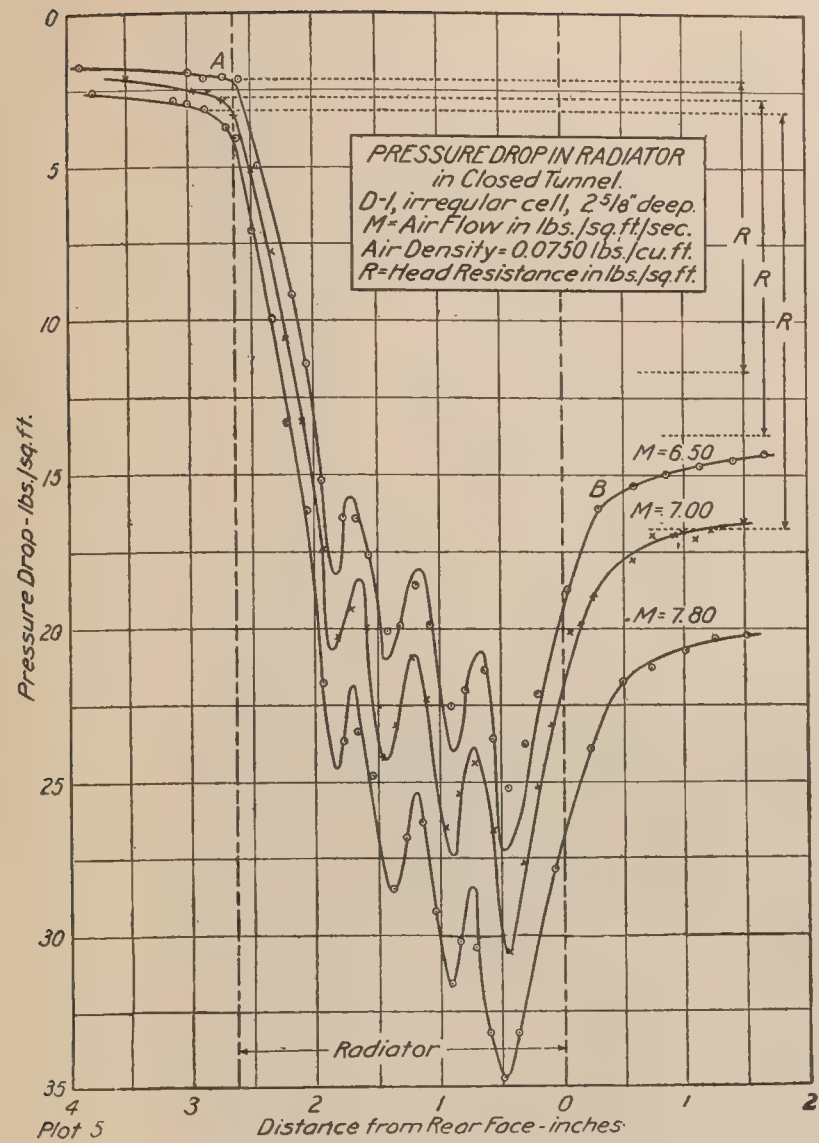 0
5
10
15
20
25
30
35
Pressure Drop - lbs./sq.ft.
A
PRESSURE DROP IN RADIATOR
in Closed Tunnel.
D-1, irregular cell, 2 5/8" deep.
M = Air Flow in lbs./sq.ft./sec.
Air Density = 0.0750 lbs./cu.ft.
R = Head Resistance in lbs./sq.ft.
R
R
R
M = 6.50
B
M = 7.00
M = 7.80
Radiator
4 3 2 1 0 1 2
Plot 5
Distance from Rear Face - inches